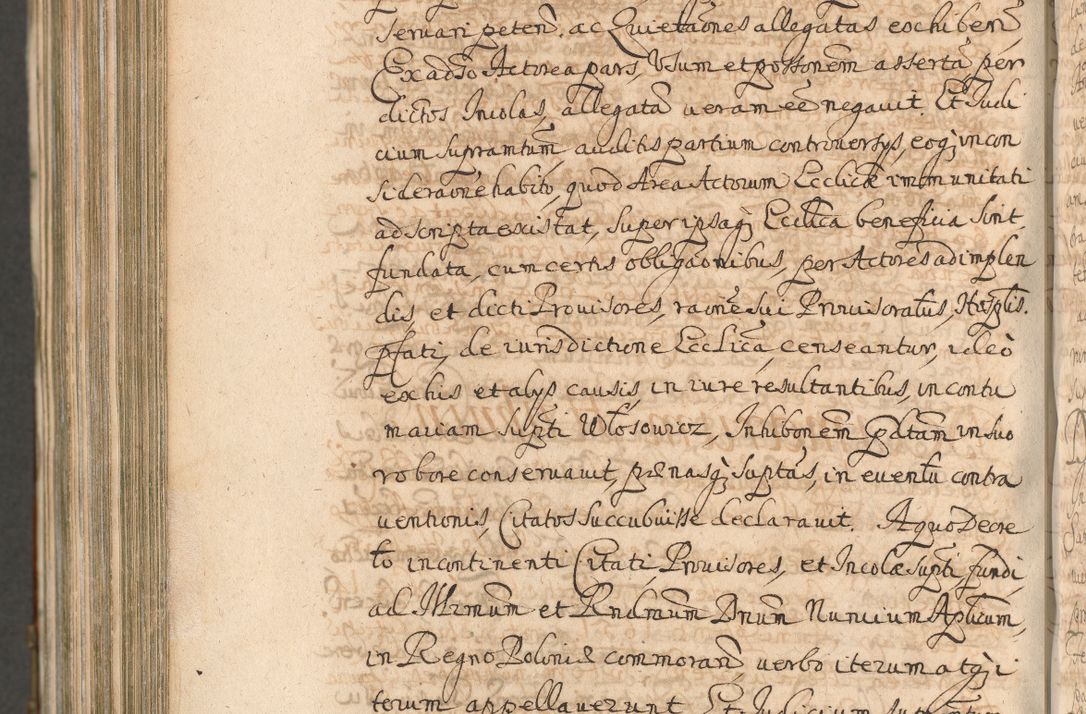 seruari peten̄. ac Quietaōnes allegatas exhiben̄,
Ex adūso Actorea pars, Vsum et possonem assertā per
dictos Incolas, allegatā ueram eē negauit. Et Iudi
cium supramtum, auditis partium controuersys, eoq; in con
sideraōne habito, quod Area Actorum Eccliæ immunitati
adscripta existat, super ipsaq; Ecclica beneficia sint
fundata, cum certis obligaōnibus, per Actores adimplen
dis, et dicti Prouisores, raōne sui Prouisoratus, Hosplis.
pfati, de iurisdictione Ecclica, censeantur, ideo
ex his et alys causis, in iure resultantibus, in contu
maciam supti Wlosowicz, Inhibonem pdtam in suo
robore conseruauit, pœnasq; suptas, in euentū contra
uentionis, Citatos succubuisse declarauit. A quo Decre
to incontinenti Citati, Prouisores, et Incolæ supti fundi,
ad Illrmum et Rndmum Dnum Nuncium Aplicum,
in Regno Poloniæ commoran̄, uerbo iterum atq; i
terum appellauerunt. Et Iudicium